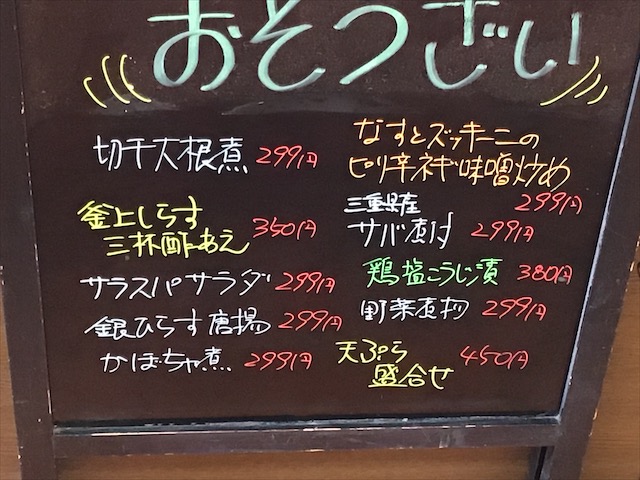 おそうざい
切干大根煮 299円
釜上しらす
三杯酢あえ 350円
サラスパサラダ 299円
銀ひらす唐揚 299円
かぼちゃ煮 299円
なすとズッキーニの
ピリ辛ネギ味噌炒め
299円
三重県産
サバ煮付 299円
鶏塩こうじ漬 380円
野菜煮物 299円
天ぷら 450円
盛合せ